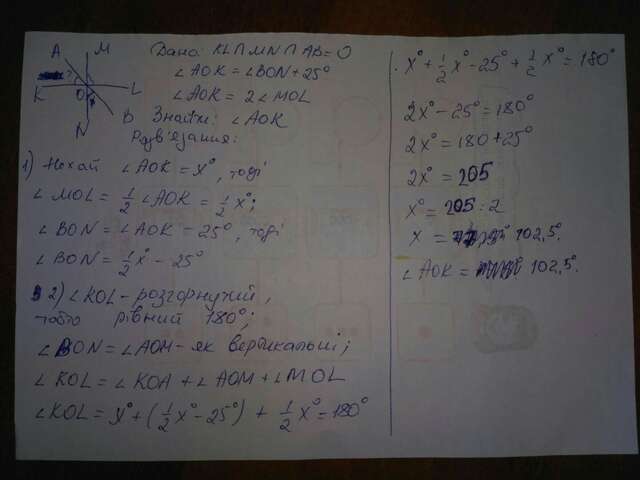 A M
K O L
N B
Дано: KL∩MN∩AB=O
∠AOK = ∠BON + 25°
∠AOK = 2∠MOL
Знайти: ∠AOK
Розв'язання:
1) Нехай ∠AOK = x°, тоді
∠MOL = 1/2 ∠AOK = 1/2 x°;
∠BON = ∠AOK - 25°, тоді
∠BON = 1/2 x° - 25°
2) ∠KOL - розгорнутий,
тобто рівний 180°;
∠BON = ∠AOM - як вертикальні;
∠KOL = ∠KOA + ∠AOM + ∠MOL
∠KOL = x° + (1/2 x° - 25°) + 1/2 x° = 180°
x° + 1/2 x° - 25° + 1/2 x° = 180°
2x° - 25° = 180°
2x° = 180 + 25°
2x° = 205
x° = 205 : 2
x = 102,5°
∠AOK = 102,5°.